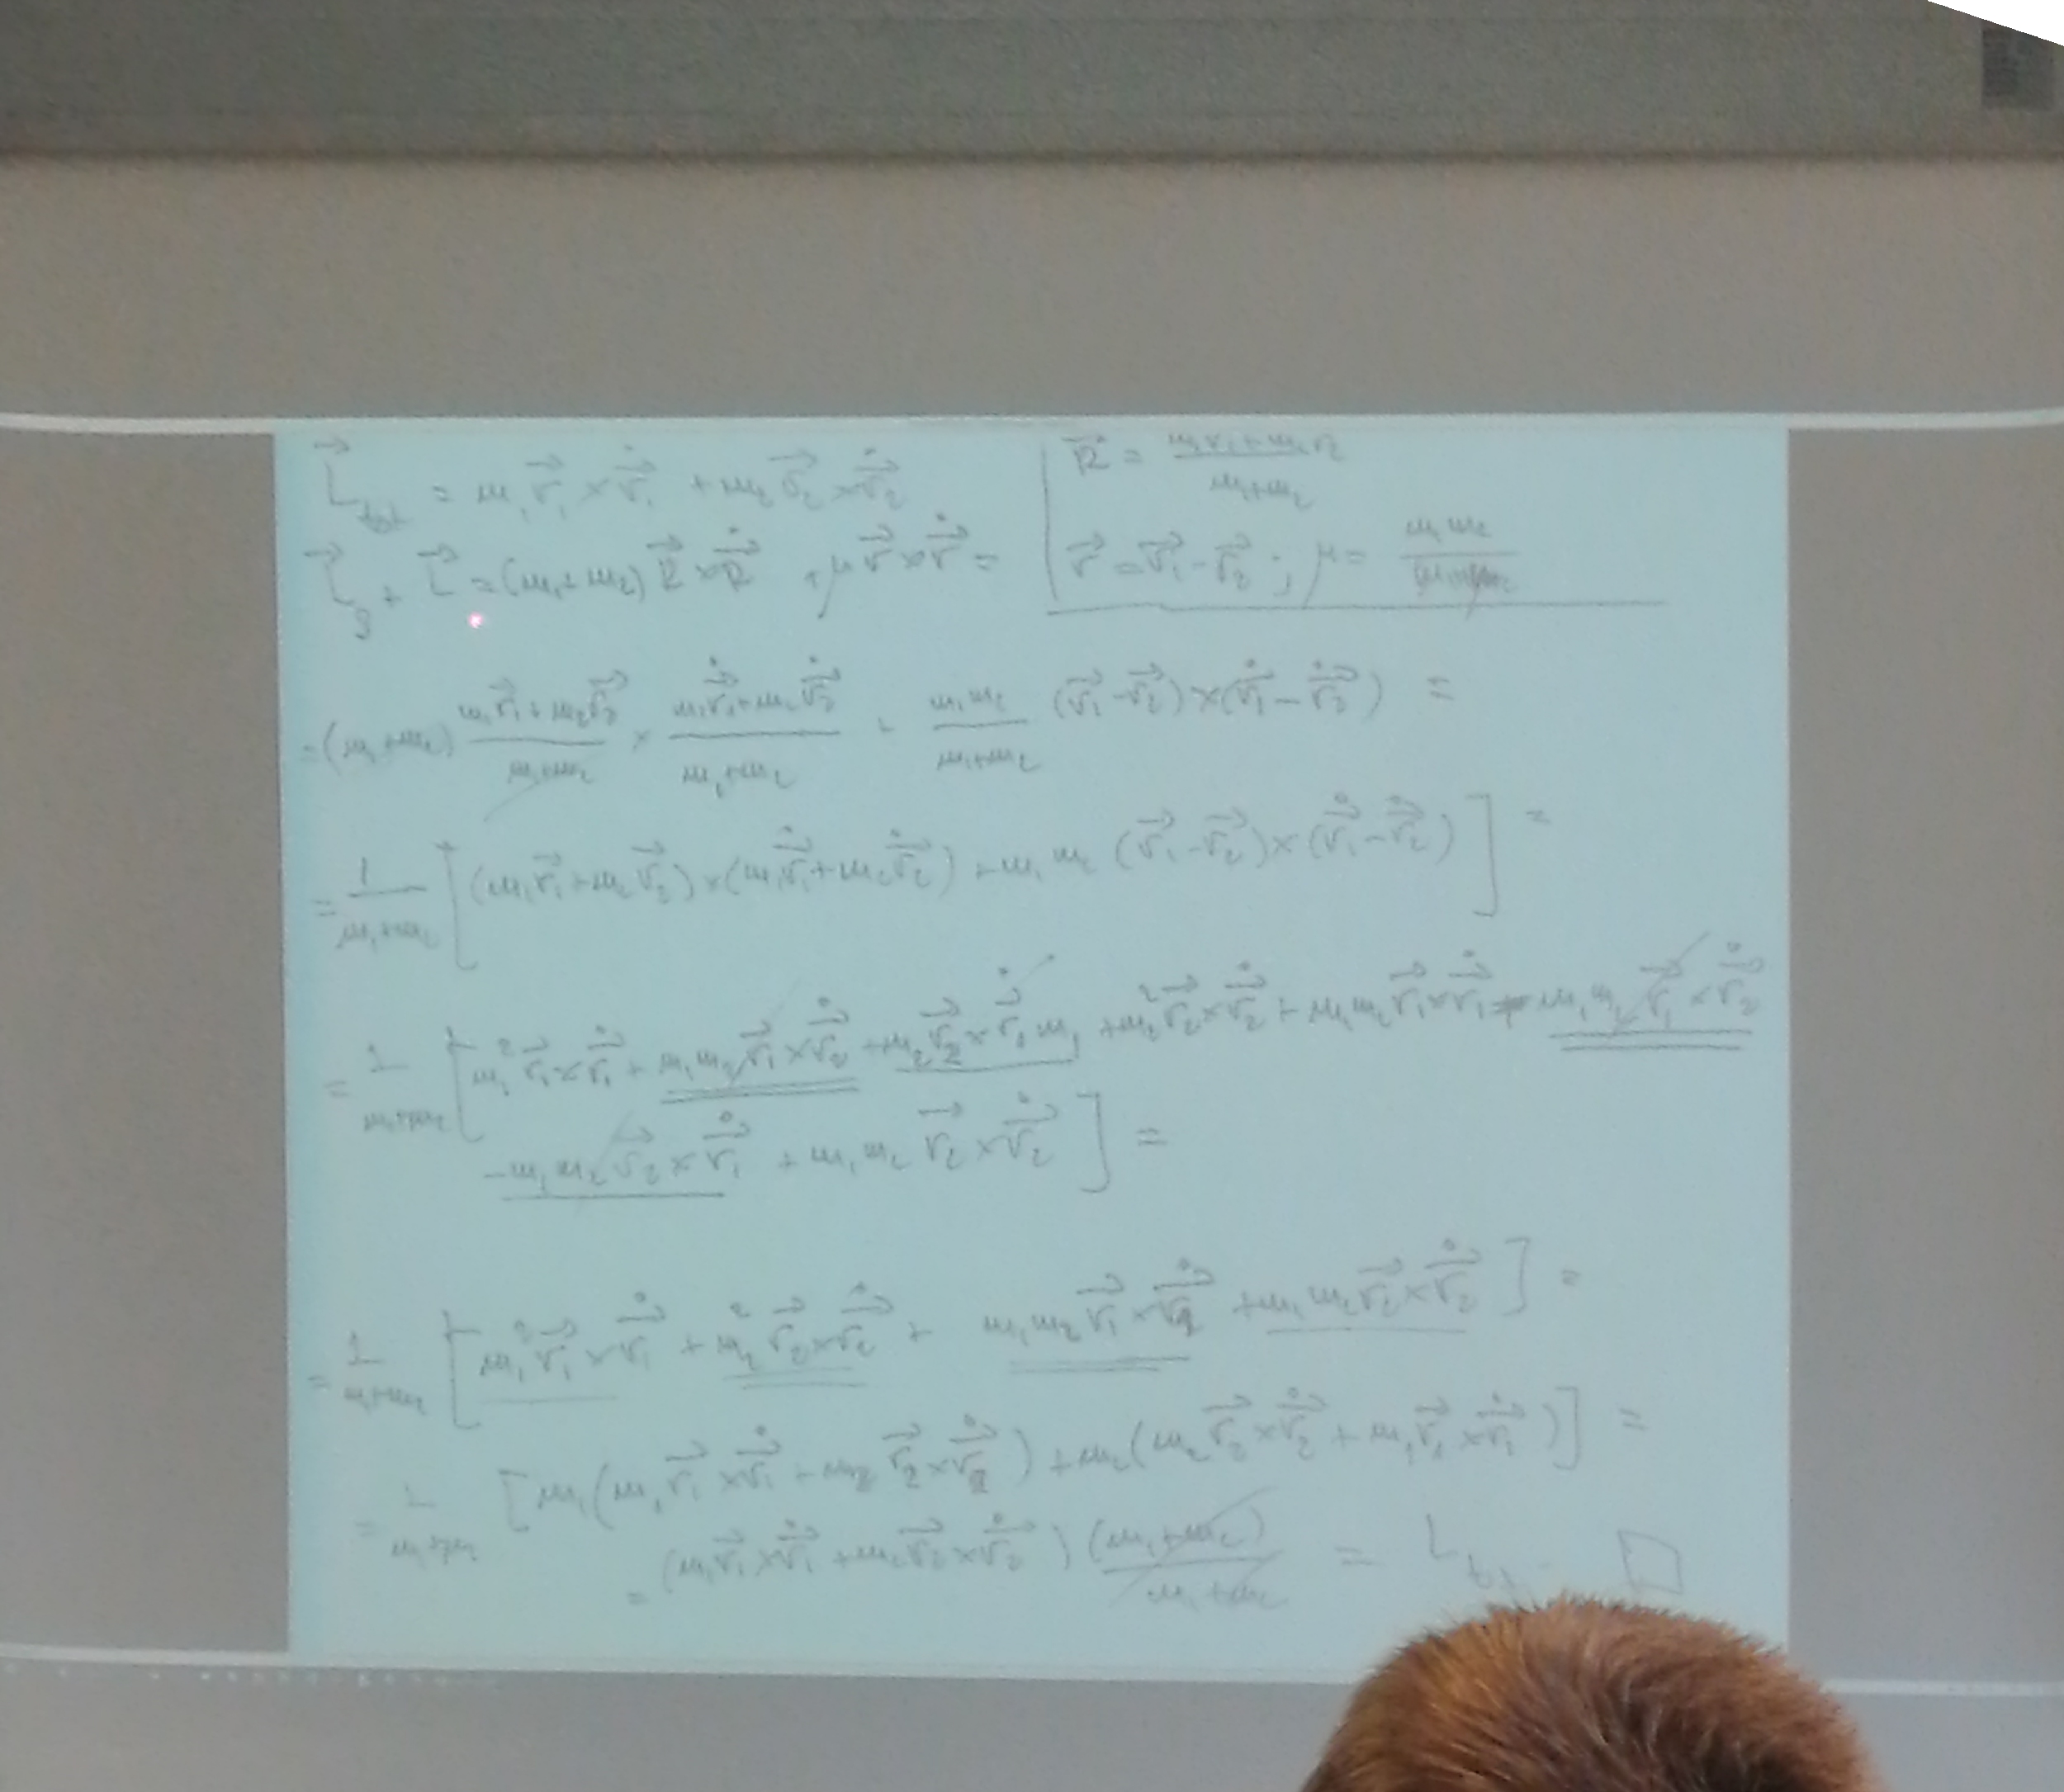 $\vec{L}_{tot} = m_1 \vec{r}_1 \times \dot{\vec{r}}_1 + m_2 \vec{r}_2 \times \dot{\vec{r}}_2$
$\vec{R} = \frac{m_1 r_1 + m_2 r_2}{m_1 + m_2}$
$\vec{L}_g + \vec{L} = (m_1 + m_2) \vec{R} \times \dot{\vec{R}} + \mu \vec{r} \times \dot{\vec{r}} =$
$\vec{r} = \vec{r}_1 - \vec{r}_2 ; \mu = \frac{m_1 m_2}{m_1 + m_2}$
$= (m_1 + m_2) \frac{m_1 \vec{r}_1 + m_2 \vec{r}_2}{m_1 + m_2} \times \frac{m_1 \dot{\vec{r}}_1 + m_2 \dot{\vec{r}}_2}{m_1 + m_2} + \frac{m_1 m_2}{m_1 + m_2} (\vec{r}_1 - \vec{r}_2) \times (\dot{\vec{r}}_1 - \dot{\vec{r}}_2) =$
$= \frac{1}{m_1 + m_2} [ (m_1 \vec{r}_1 + m_2 \vec{r}_2) \times (m_1 \dot{\vec{r}}_1 + m_2 \dot{\vec{r}}_2) + m_1 m_2 (\vec{r}_1 - \vec{r}_2) \times (\dot{\vec{r}}_1 - \dot{\vec{r}}_2) ] =$
$= \frac{1}{m_1 + m_2} [ m_1^2 \vec{r}_1 \times \dot{\vec{r}}_1 + m_1 m_2 \vec{r}_1 \times \dot{\vec{r}}_2 + m_2 \vec{r}_2 \times \dot{\vec{r}}_1 m_1 + m_2^2 \vec{r}_2 \times \dot{\vec{r}}_2 + m_1 m_2 \vec{r}_1 \times \dot{\vec{r}}_1 - m_1 m_2 \vec{r}_1 \times \dot{\vec{r}}_2$
$- m_1 m_2 \vec{r}_2 \times \dot{\vec{r}}_1 + m_1 m_2 \vec{r}_2 \times \dot{\vec{r}}_2 ] =$
$= \frac{1}{m_1 + m_2} [ m_1^2 \vec{r}_1 \times \dot{\vec{r}}_1 + m_2^2 \vec{r}_2 \times \dot{\vec{r}}_2 + m_1 m_2 \vec{r}_1 \times \dot{\vec{r}}_1 + m_1 m_2 \vec{r}_2 \times \dot{\vec{r}}_2 ] =$
$= \frac{1}{m_1 + m_2} [ m_1 (m_1 \vec{r}_1 \times \dot{\vec{r}}_1 + m_2 \vec{r}_2 \times \dot{\vec{r}}_2) + m_2 (m_2 \vec{r}_2 \times \dot{\vec{r}}_2 + m_1 \vec{r}_1 \times \dot{\vec{r}}_1) ] =$
$= (m_1 \vec{r}_1 \times \dot{\vec{r}}_1 + m_2 \vec{r}_2 \times \dot{\vec{r}}_2) \frac{(m_1 + m_2)}{m_1 + m_2} = L_{tot}$ □